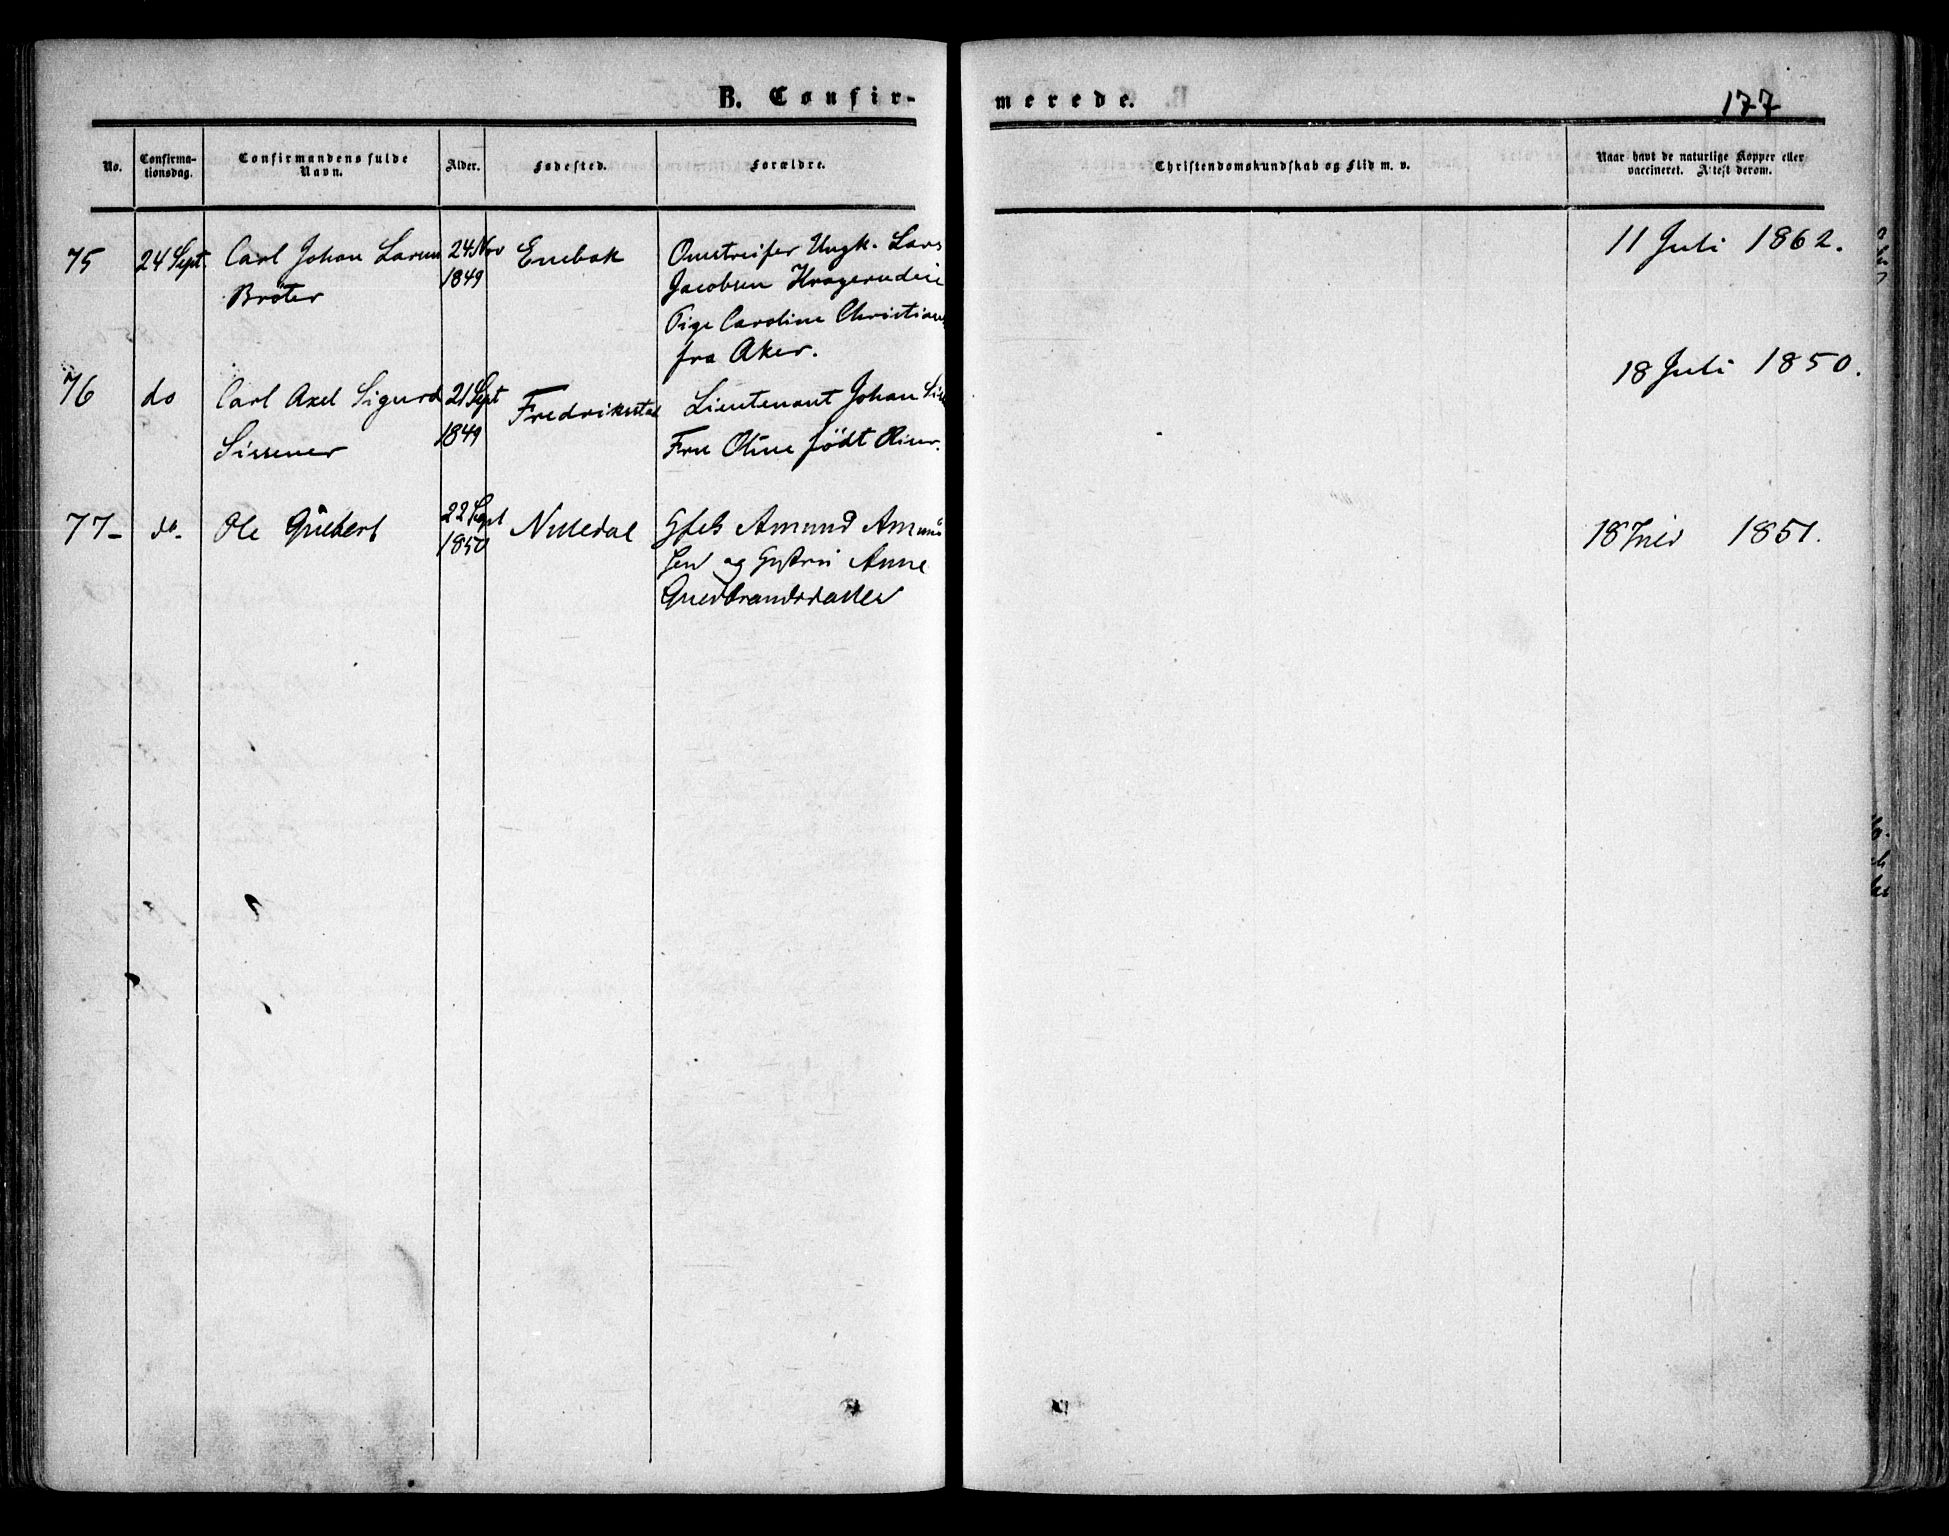 B. Confir-
merede.
177
No.
Confirma-
tionsdag.
Confirmandens fulde
Navn.
Alder.
Fødested.
Forældre.
Christendomskundskab og Flid m. v.
Naar havt de naturlige Kopper eller
vaccineret. Attest derom.
75 24 Sept. Carl Johan Larsen 24 Nov Enebak Omstreifer Ungk. Lars 11 Juli 1862.
Bröter 1849 Jacobsen Kragerudeie
Pige Caroline Christians
fra Aker.
76 do Carl Axel Sigurd 21 Sept Fredrikstad Lieutenant Johan 18 Juli 1850.
Sissener 1849 Fru Oline födt
77- do. Ole Gulbert 22 Sept Nittedal Gfest Amund Amund 18 1851.
1850 sen og Hustru Anne
Gulbrandsdatter